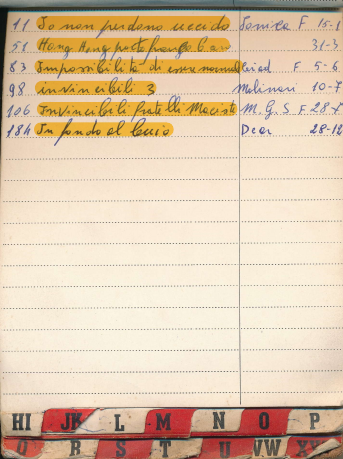 11 Io non perdono uccido F 15-1
51 Hong Kong porto franco 31-3
83 Impossibilità di essere normale F 5-6
98 invincibili 3 Molinari 10-7
106 Invincibili fratelli Maciste M.G.S F 28-7
184 In fondo al buio Dear 28-12
HI JK L M N O P
Q R S T U VW XY